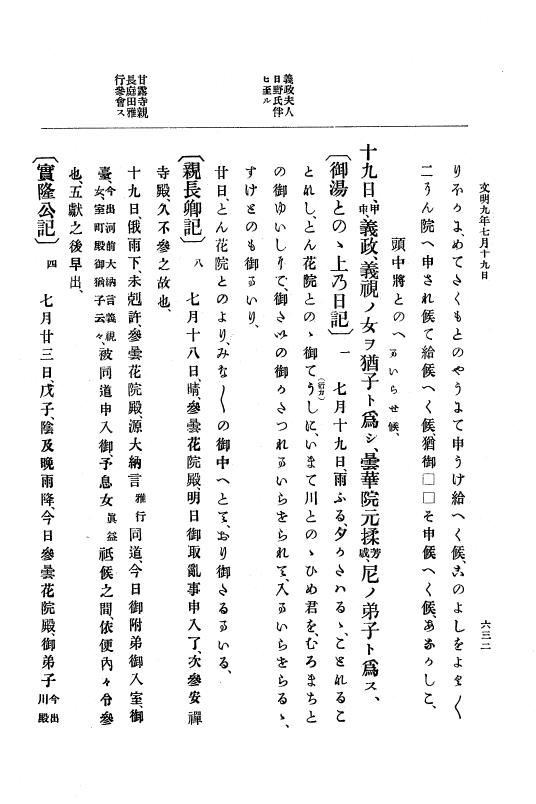 文明九年七月十九日
六三二
義政夫人
日野氏伴
ヒ至ル
甘露寺親
長庭田雅
行參會ス
りふるよ、めてさくもとのやうよて申うけ給へく候、このよしをよく〳〵
二うん院へ申され候て給候へく候、猶御□□そ申候へく候、あかうしこ、
頭中將とのへまいらせ候、
十九日、甲申義政、義視ノ女ヲ猶子ト爲シ、曇華院元揉芳咸尼ノ弟子ト爲ス、
〔御湯とのゝ上乃日記〕一 七月十九日、雨ふる、夕かさハるゝ、ことれるこ
とれし、とん花院とのゝ御てうし(行力)に、いまて川とのゝひめ君を、むろまちと
の御ゆいしりて、御さいの御かさつれまいらせられて、入まいらせらるゝ、
すけとのも御まいり、
廿日、とん花院とのより、みな〳〵の御中へとて、おり御さるまいる、
〔親長卿記〕八 七月十八日、晴、參曇花院殿、明日御取亂事申入了、次參安禪
寺殿、久不參之故也、
十九日、俄雨下、未剋許、參曇花院殿、源大納言雅行同道、今日御附弟御入室、御
臺、今出河前大納言義視女、室町殿御猶子云々、被同道申入御、予息女眞益祗候之間、依便內々令參
也、五獻之後早出、
〔實隆公記〕四 七月廿三日、戊子、陰及晚雨降、今日參曇花院殿、御弟子今出川殿